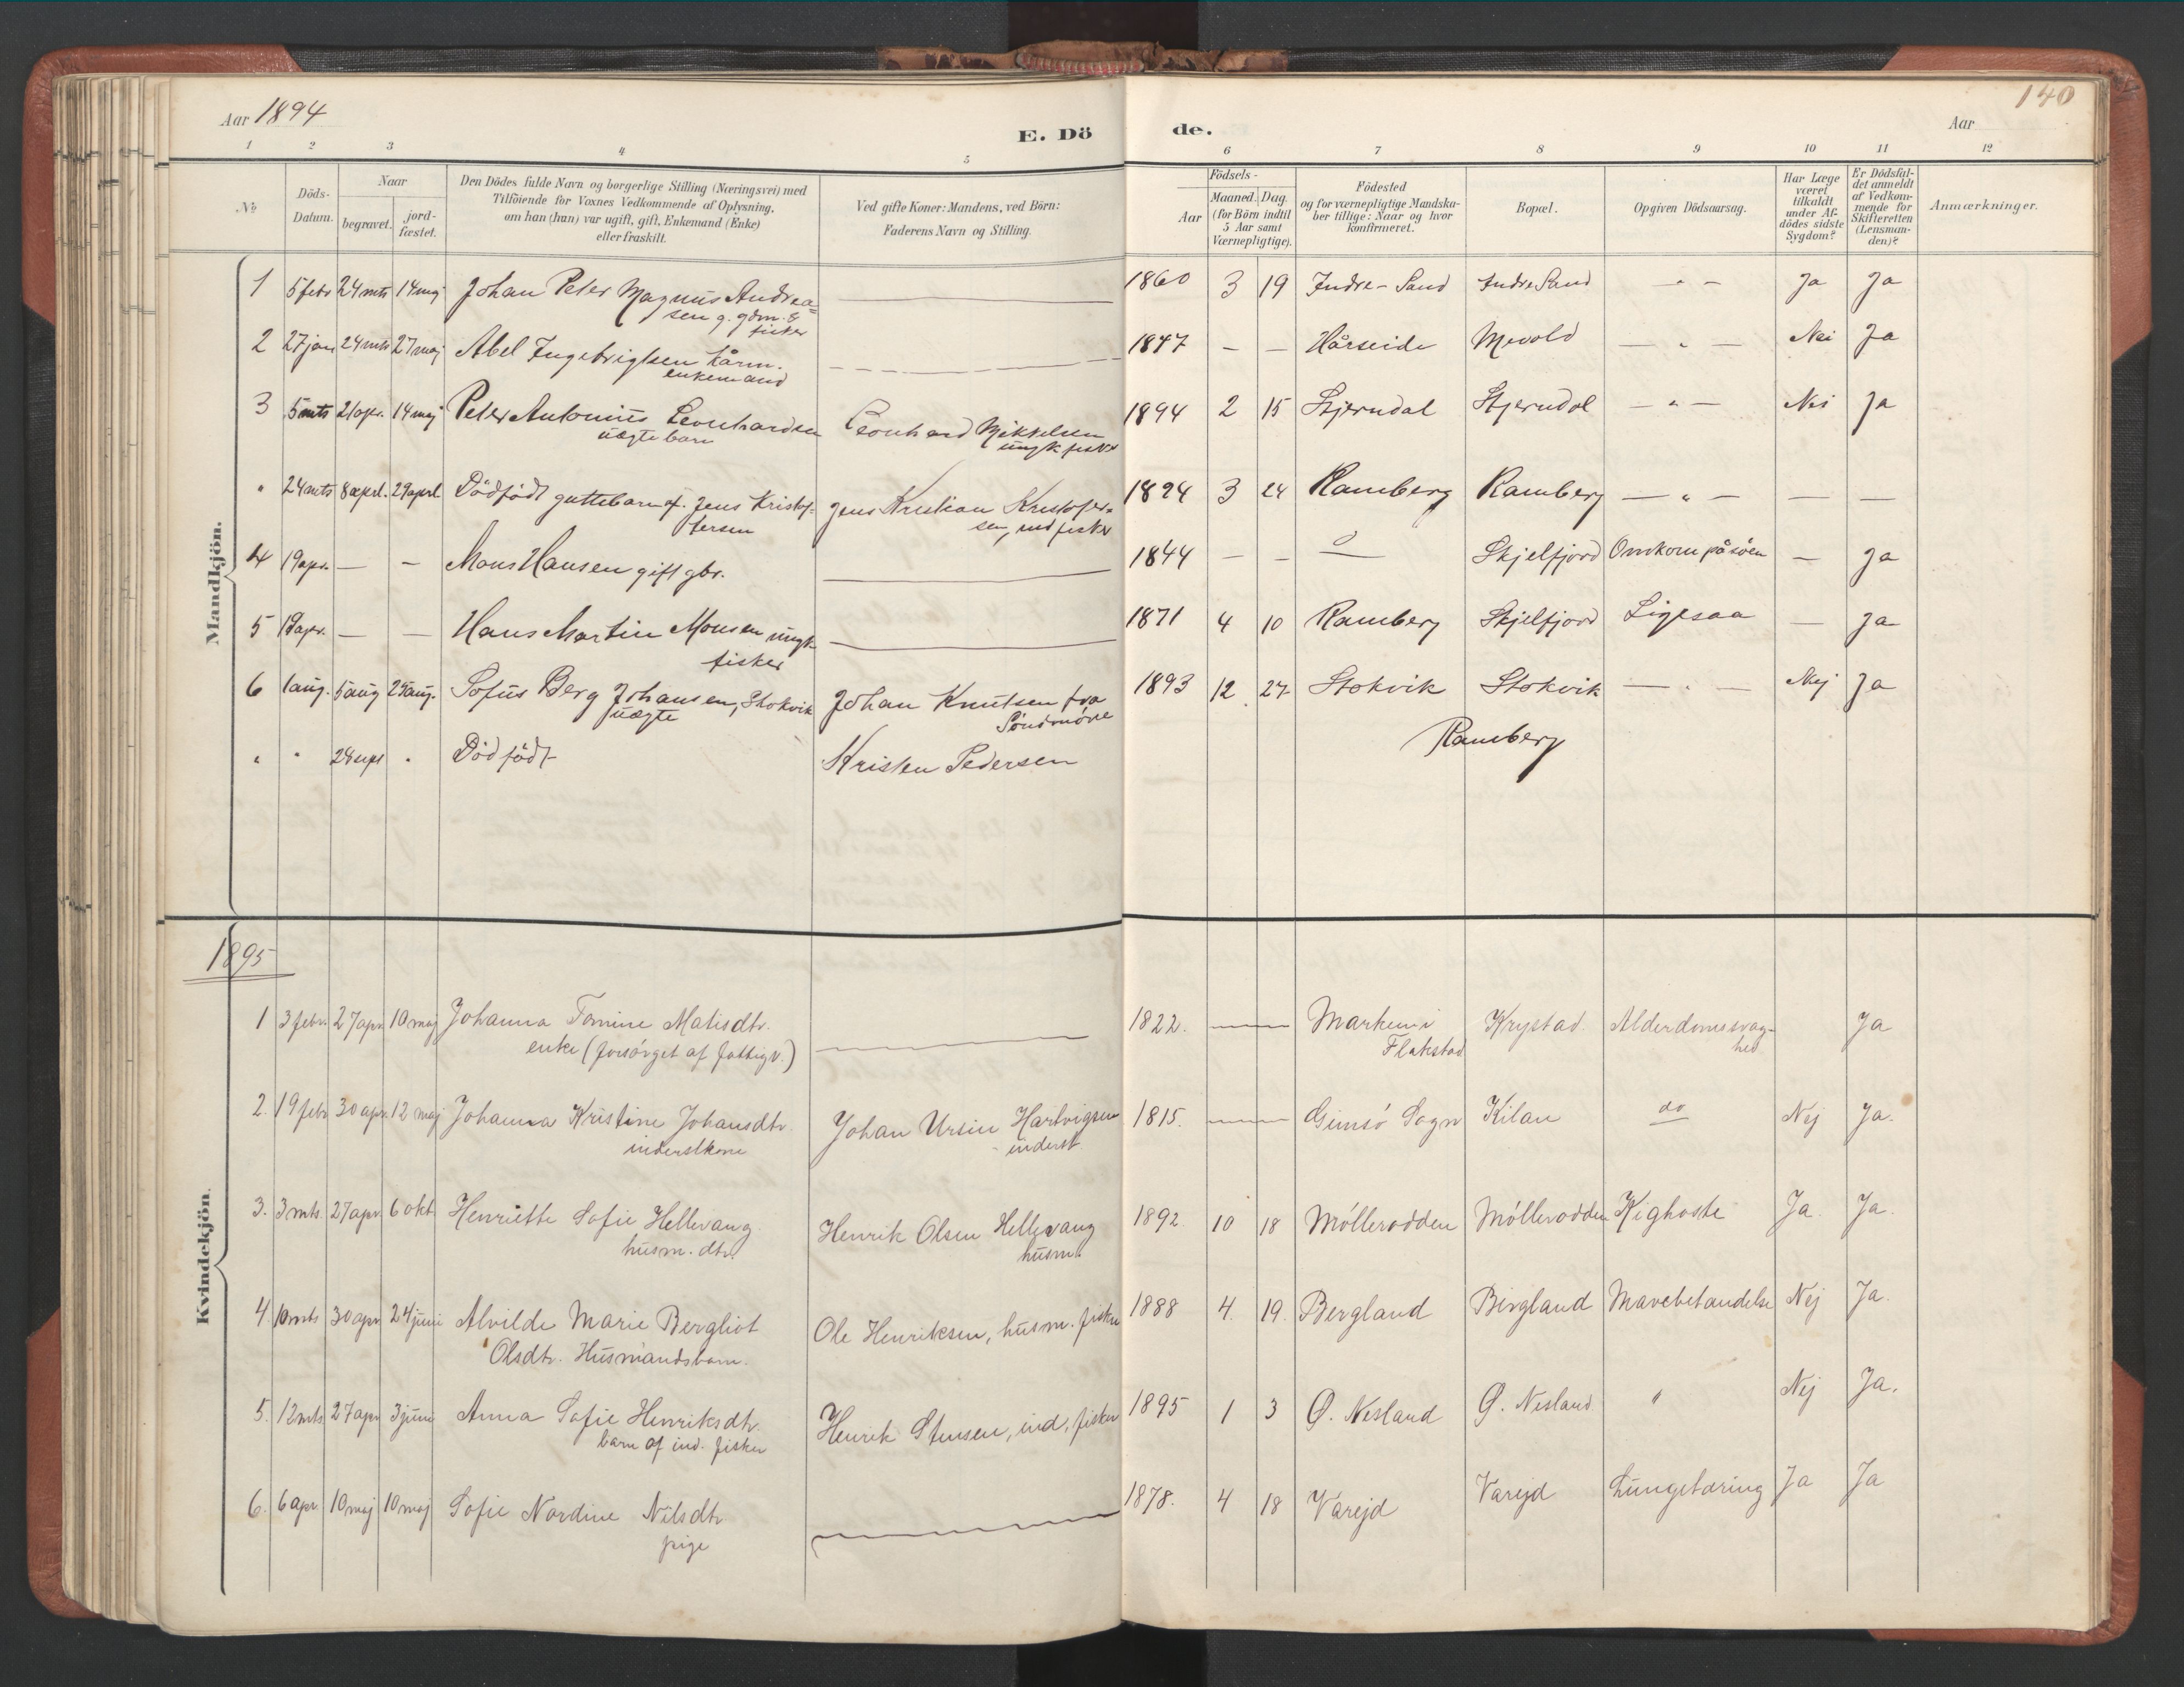 Aar 1894
E. Dö
de.
140
Aar
1 2 3 4 5 6 7 8 9 10 11 12
№
Döds-
Datum.
Naar
begravet.
jord-
fæstet.
Den Dödes fulde Navn og borgerlige Stilling (Næringsvei) med
Tilföiende for Voxnes Vedkommende af Oplysning,
om han (hun) var ugift, gift, Enkemand (Enke)
eller fraskilt.
Ved gifte Koner: Mandens, ved Börn:
Faderens Navn og Stilling.
Födsels-
Aar
Maaned. Dag.
(for Börn indtil
5 Aar samt
Værnepligtige).
Födested
og for værnepligtige Mandska-
ber tillige: Naar og hvor
konfirmeret.
Bopæl.
Opgiven Dödsaarsag.
Har Læge
været
tilkaldt
under Af-
dödes sidste
Sygdom?
Er Dödsfal-
det anmeldt
af Vedkom-
mende for
Skifteretten
(Lensman-
den)?
Anmærkninger.
Mandkjön.
1 5 febr 24 mts 14 maj Johan Peter Magnus Andrea= 1860 3 19 Indre-Sand Indre Sand - " - Ja Ja
sen g. gdm. &
fisker
2 27 jan 24 mts 27 maj Abel Ingebrigtsen kårm. 1847 - - Hårseide Mevold - " - Nei Ja
enkemand
3 5 mts 21 apr. 14 maj Peter Antonius Leonhardsen Leonhard Mikkelsen 1894 2 15 Stjerndal Stjerndal - " - Nei Ja
uægte barn ungk fisker
" 24 mts 8 aprl. 29 aprl Dödfödt guttebarn af Jens Kristof- Jens Kristian Kristofer= 1894 3 24 Ramberg Ramberg - " - - -
fersen sen, ind fisker
4 19 apr. - - Mons Hansen gift gbr. 1844 - - o Skjelfjord Omkom på söen - Ja
5 19 apr. - - Hans Martin Monsen ungk 1871 4 10 Ramberg Skjelfjord Ligesaa - Ja
fisker
6 1 aug. 5 aug 25 aug. Sofus Berg Johansen, Stokvik Johan Knutsen fra 1893 12 27 Stokvik Stokvik - " - Nej Ja
uægte Söndmöre
" " 24 sept " Dödfödt Kristen Pedersen Ramberg
1895
Kvindekjön.
1 3 febr. 27 apr. 10 maj Johanna Tomine Matisdtr. 1822. Marken i Krystad Alderdomssvag- Ja
enke (forsörget af fattigv.) Flakstad hed
2. 19 febr 30 apr. 12 maj Johanna Kristine Johansdtr. Johan Ursin Hartvigsen 1815. Gimsö Sogn Kilan do Nej Ja.
inderstkone inderst
3. 3 mts. 27 apr. 6 okt Henriette Sofie Hellevang Henrik Olsen Hellevang 1892. 10 18 Möllerodden Möllerodden Kighoste Ja. Ja.
husm. dtr. husm.
4. 10 mts 30 apr 24 juni Alvilde Marie Bergliot Ole Henriksen, husm. fisker 1888 4. 19. Bergland Bergland Mavebetændelse Nej Ja.
Olsdtr. Husmandsbarn.
5. 12 mts. 27 apr 3 juni Anna Sofie Henriksdtr. Henrik Stensen, ind, fisker 1895 1 3 Ø. Nesland Ø. Nesland " Nej Ja.
barn af ind. fisker
6. 6 apr. 10 maj 10 maj Sofie Nordine Nilsdtr. 1878. 4 18 Varejd Varejd Lungetæring Ja Ja
pige